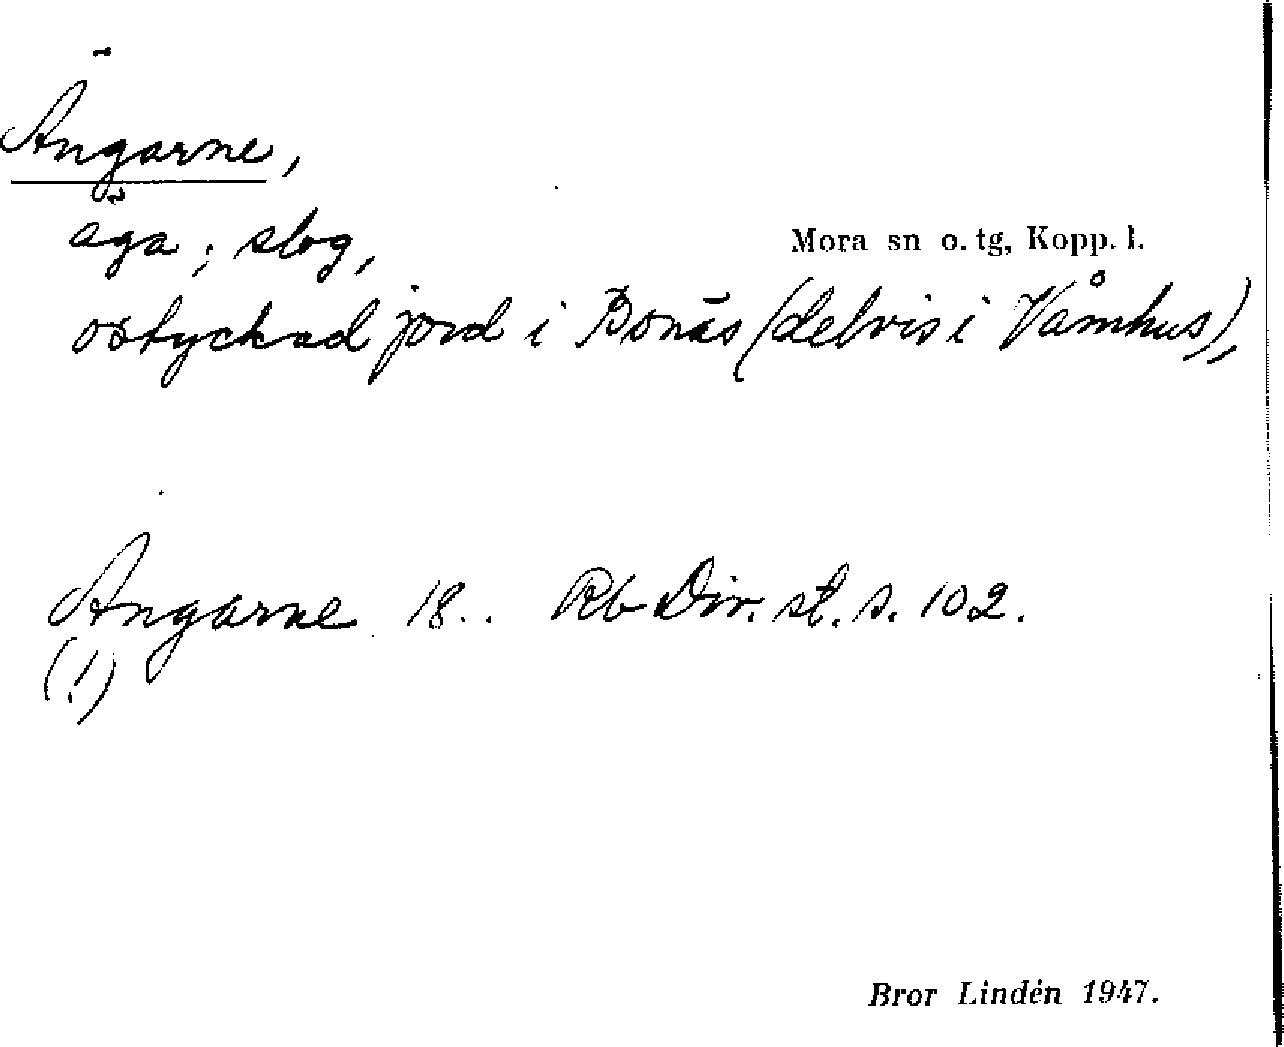 Ängarne,
äga; slog,
Mora sn o. tg, Kopp. l.
ostyckad jord i Bonäs (delvis i Våmhus),
Angarne 18.. Rb Div. st. s. 102.
(!)
Bror Lindén 1947.